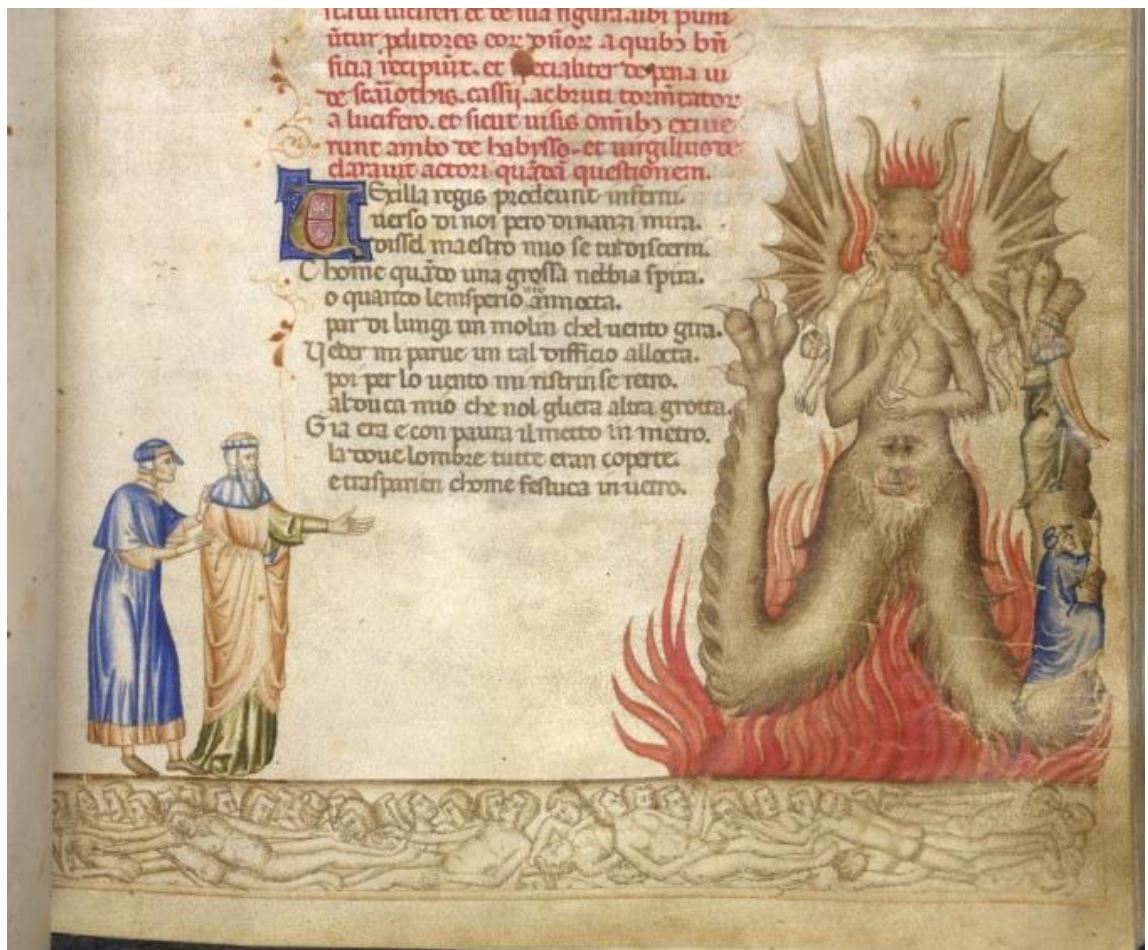 ūtur ꝓditores eoꝝ dn̄oꝝ a quibꝫ bn̄
ficia recipiūt. et specialiter de pena iu
de scariothis. cassii. ac bruti torm̄tatoꝝ
a lucifero. et sicut uisis om̄ibꝫ exiue
runt ambo de habysso. et uirgilius de
clarauit actori quādā questionem.
Vexilla regis prodeunt inferni.
uerso di noi pero dinanzi mira.
dissel maestro mio se tu discerni.
Chome quādo una grossa nebbia spira.
o quanto lemsperio n̄ro ānnocta.
par di lungi un molin chel uento gira.
Ueder mi parue un tal difficio allocta.
poi per lo uento mi ristrinse retro.
al duca mio che nol gliera altra grotta.
Gia era e con paura il metto in metro.
la doue lombre tutte eran coperte.
e trasparien chome festuca in uetro.